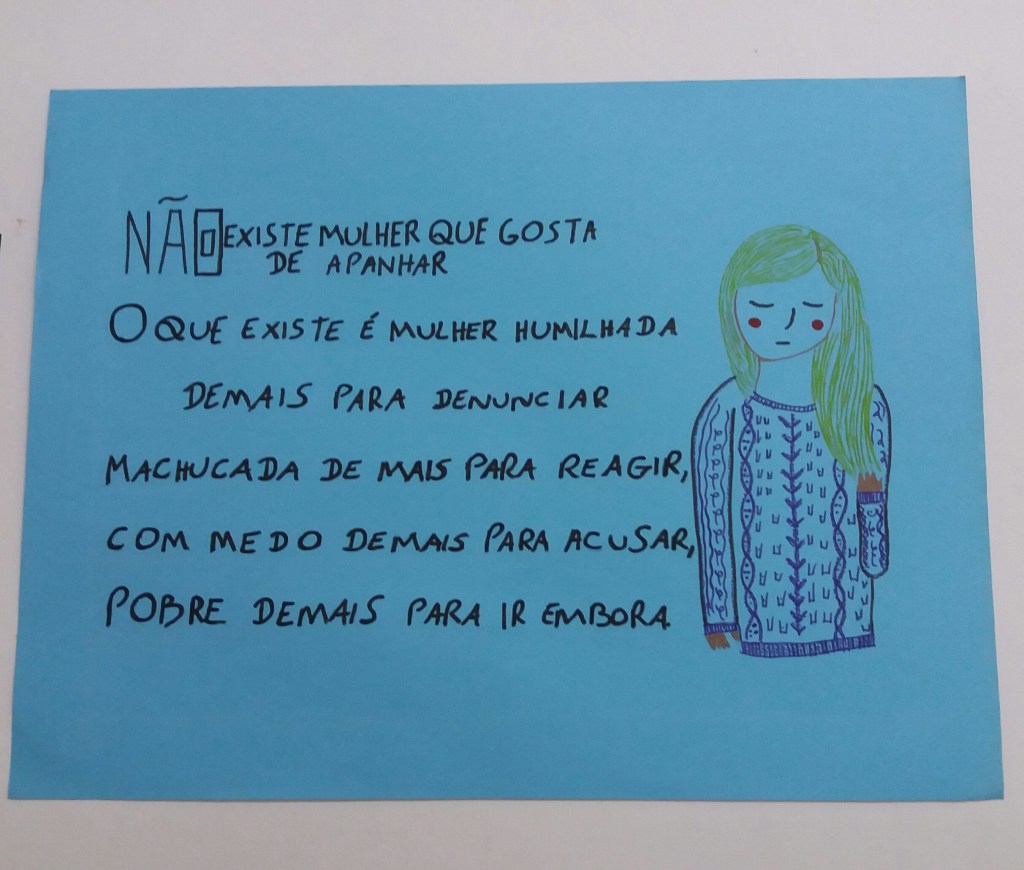 NÃO EXISTE MULHER QUE GOSTA
DE APANHAR
O QUE EXISTE É MULHER HUMILHADA
DEMAIS PARA DENUNCIAR
MACHUCADA DE MAIS PARA REAGIR,
COM MEDO DEMAIS PARA ACUSAR,
POBRE DEMAIS PARA IR EMBORA.